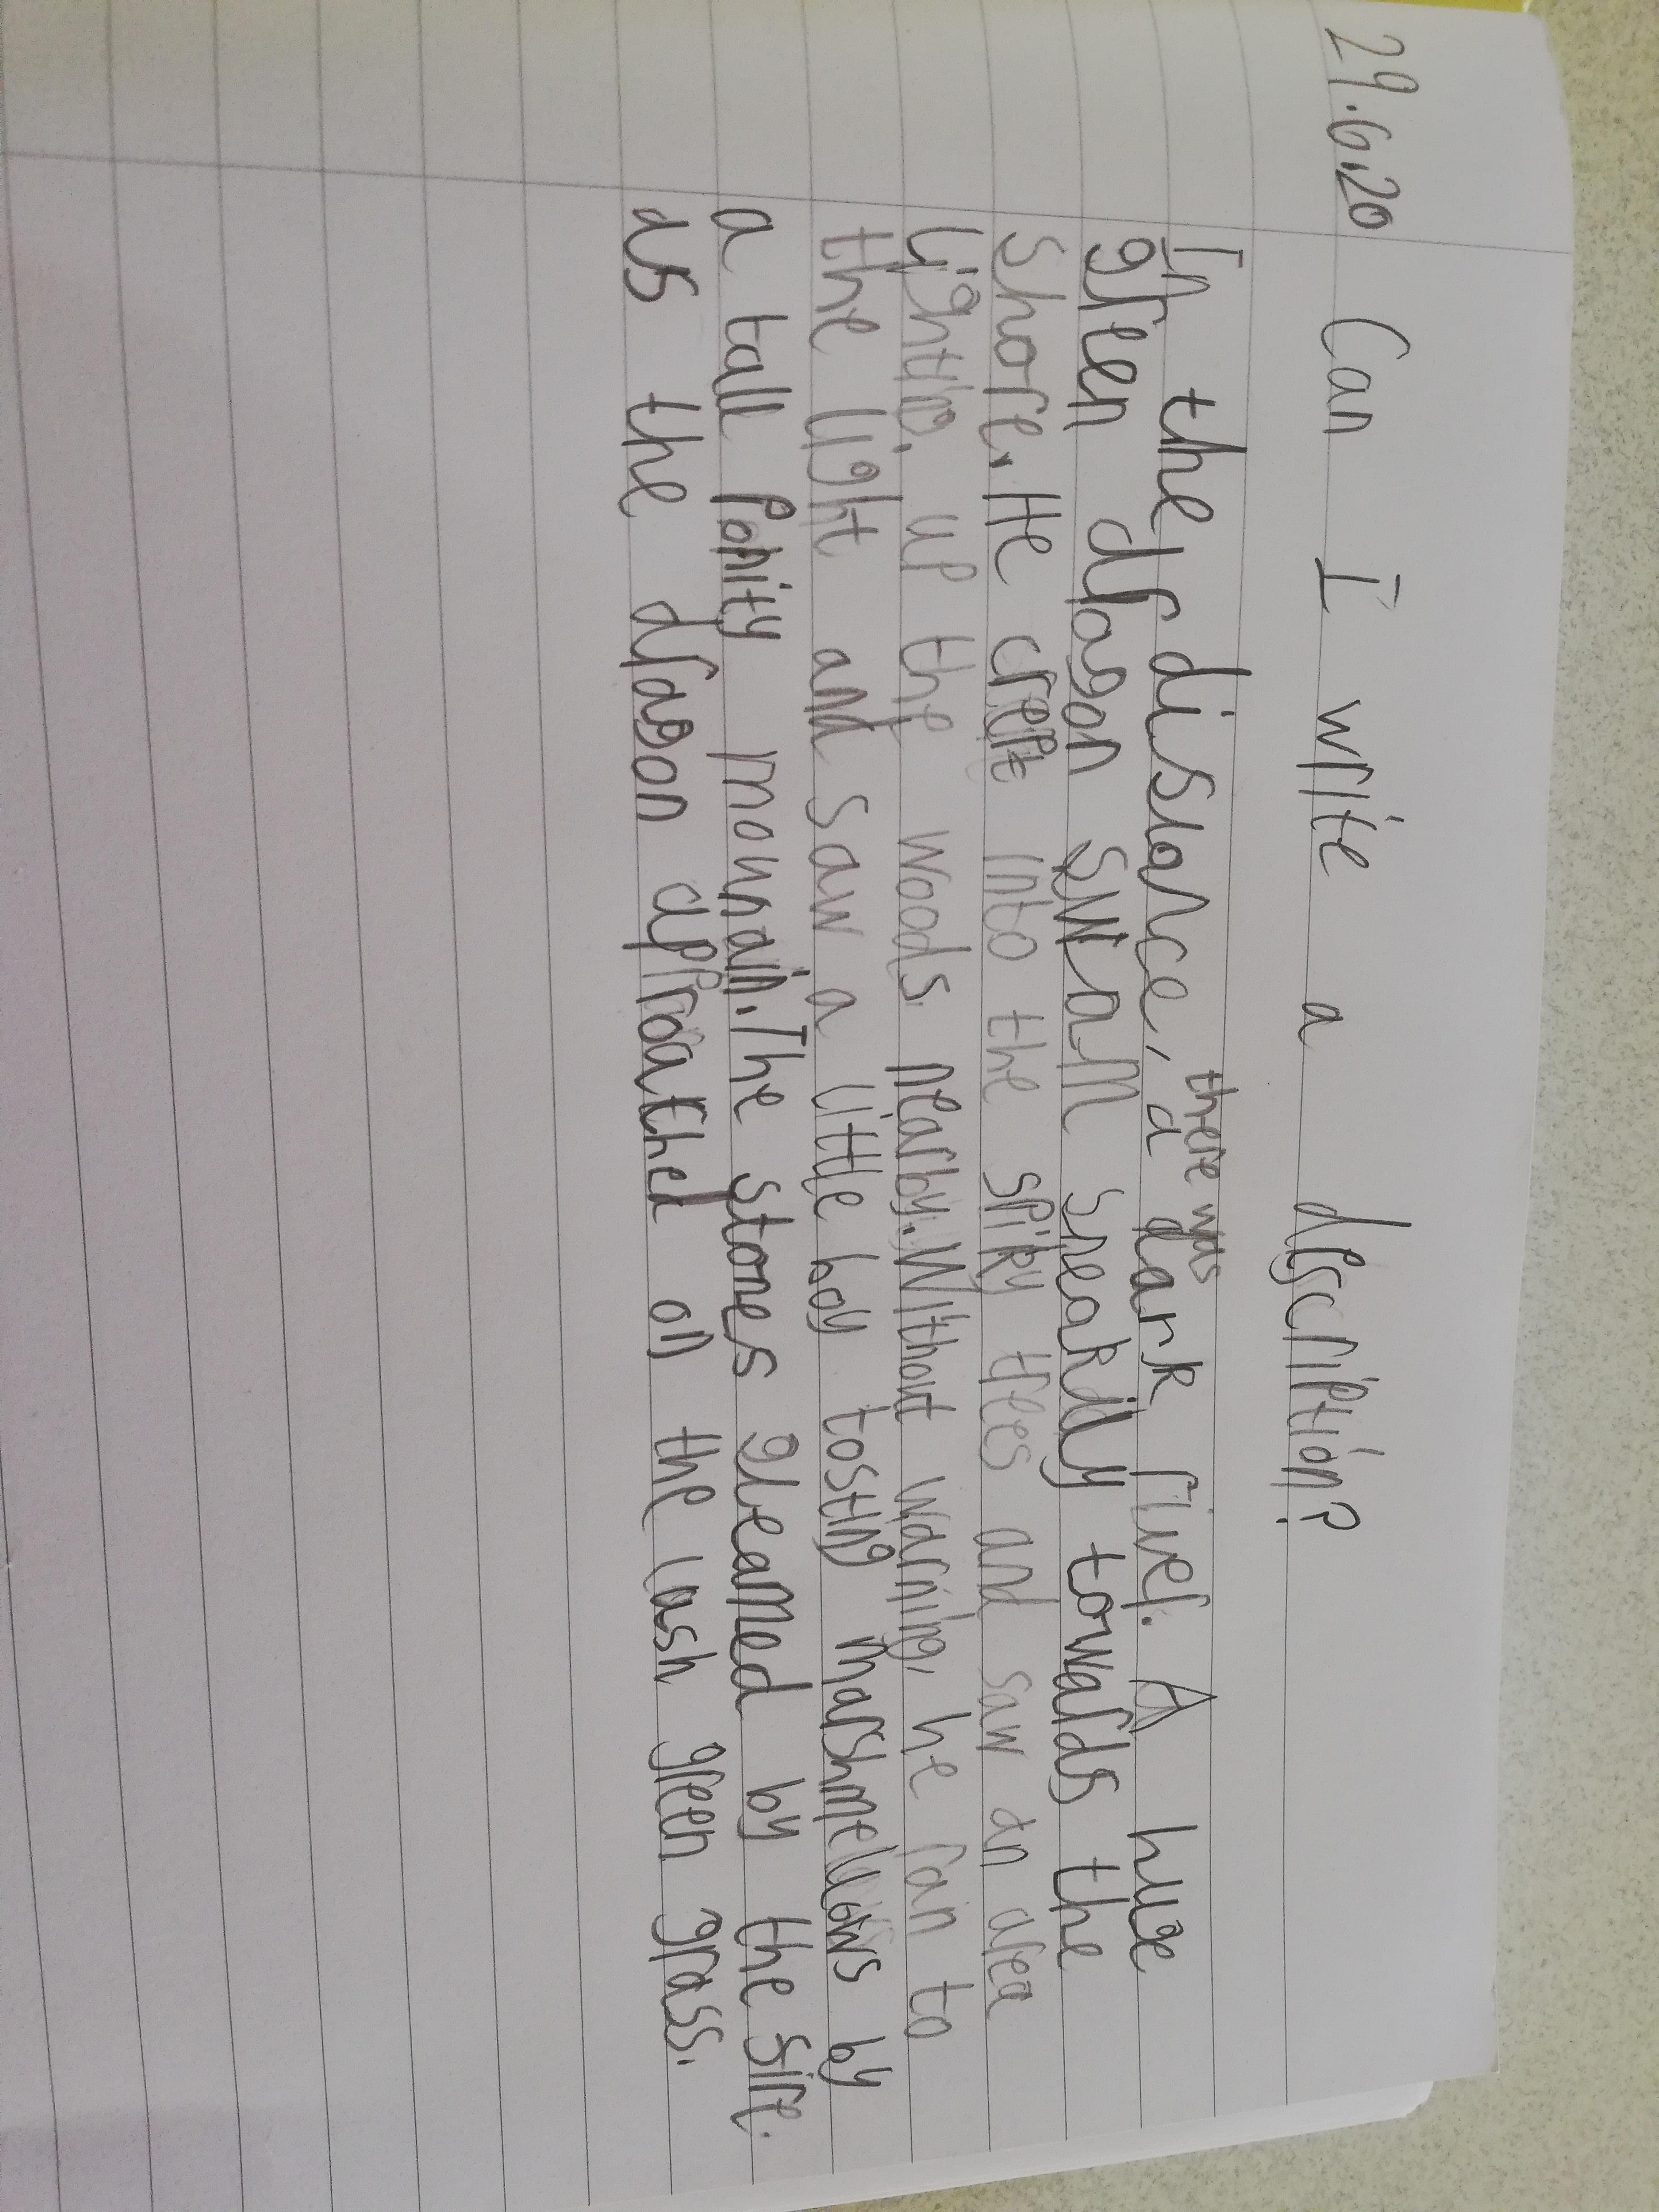 29.6.20 Can I write a description?
there was
In the distance, a dark river. A huge
green dragon swam sneakily towards the
shore. He crept into the spiky trees and saw an area
lighting up the woods nearby. Without warning, he ran to
the light and saw a little boy tosting marshmellows by
a tall ponity mounain. The stones gleamed by the fire.
as the dragon approatched on the lush green grass.